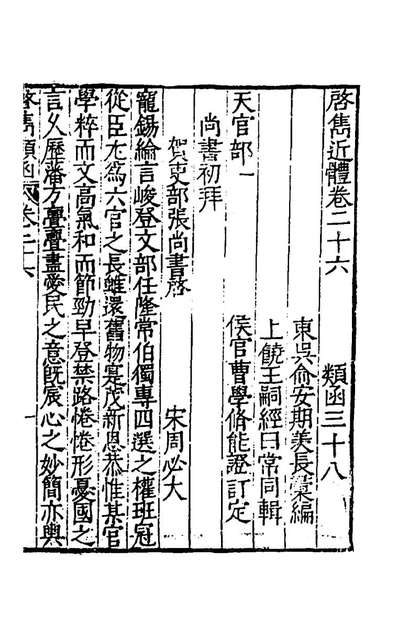 啓雋近體卷二十六　類函三十八
東吳俞安期羨長彙編
上饒王嗣經曰常同輯
侯官曹學佺能證訂定
天官部一
尚書初拜
賀吏部張尚書啓　宋周必大
寵錫綸言峻登文部任隆常伯獨專四選之權班冠
從臣尤為六官之長雖還舊物寔茂新恩恭惟某官
學粹而文高氣和而節勁早登禁路惓惓形憂國之
言久歷藩方亹亹盡愛民之意旣展心之妙簡亦輿
啓雋類函 卷二十六 一